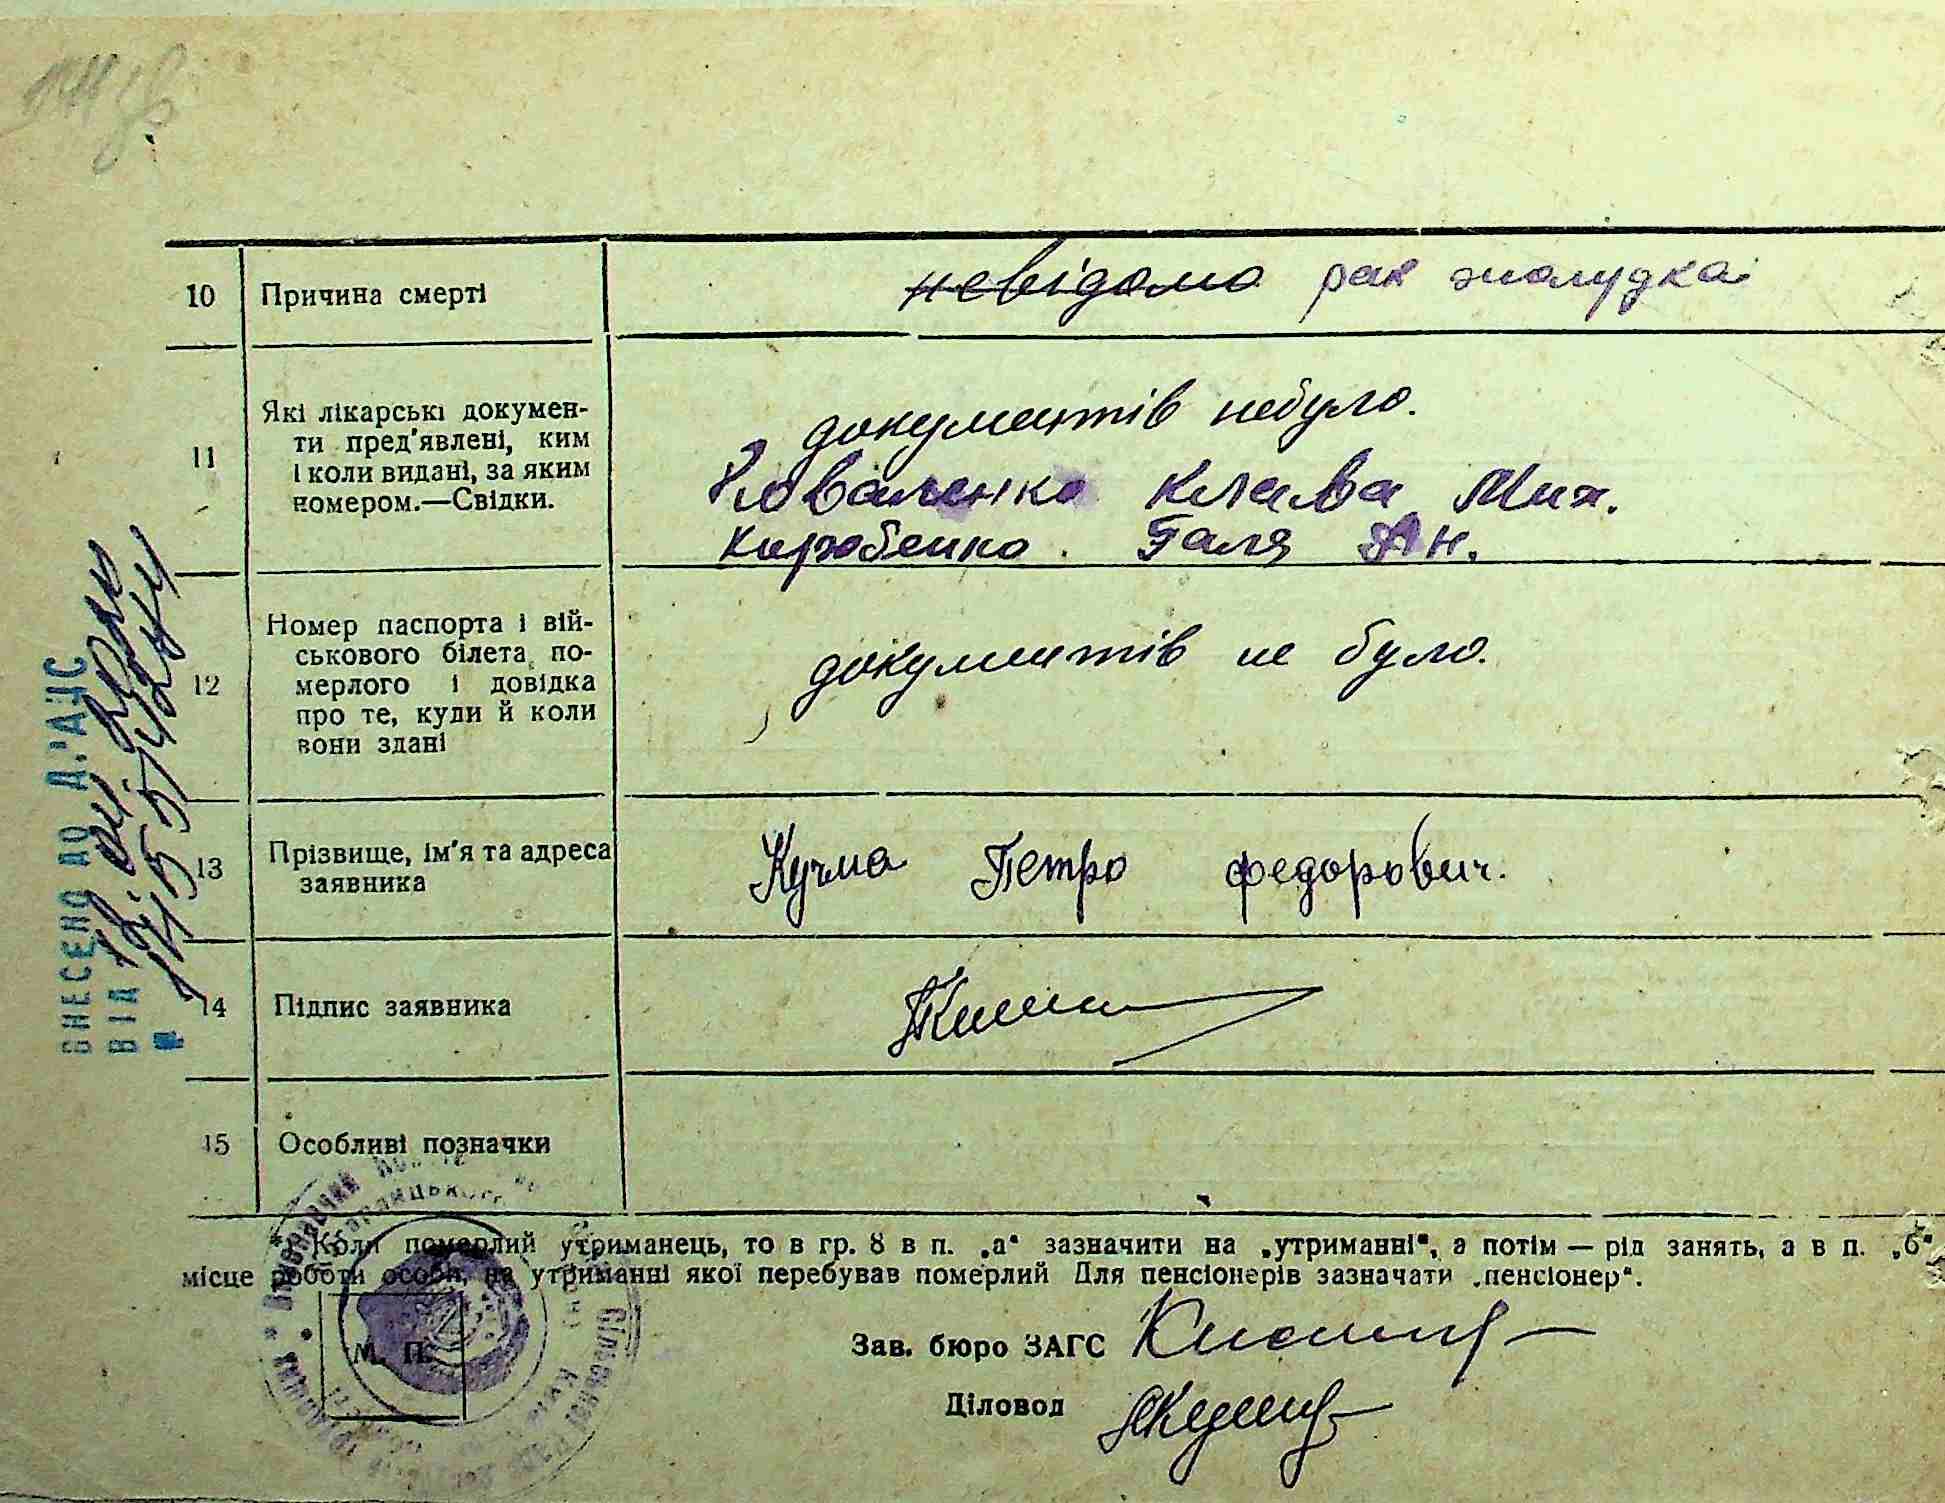 10 Причина смерті невідомо рак жолудка
11 Які лікарські докумен-
ти пред'явлені, ким
і коли видані, за яким
номером.—Свідки.
документів небуло.
Коваленко Клава Мих.
Галя Ан.
12 Номер паспорта і вій-
ськового білета по-
мерлого і довідка
про те, куди й коли
вони здані
документів не було.
13 Прізвище, ім'я та адреса
заявника
Кучма Петро Федорович.
14 Підпис заявника
15 Особливі позначки
Коли померлий утриманець, то в гр. 8 в п. „а" зазначити на „утриманні", а потім — рід занять, а в п. „б"
місце роботи особи, на утриманні якої перебував померлий Для пенсіонерів зазначати „пенсіонер".
М. П.
Зав. бюро ЗАГС
Діловод
ВНЕСЕНО ДО Д.'АЦС
ВІД